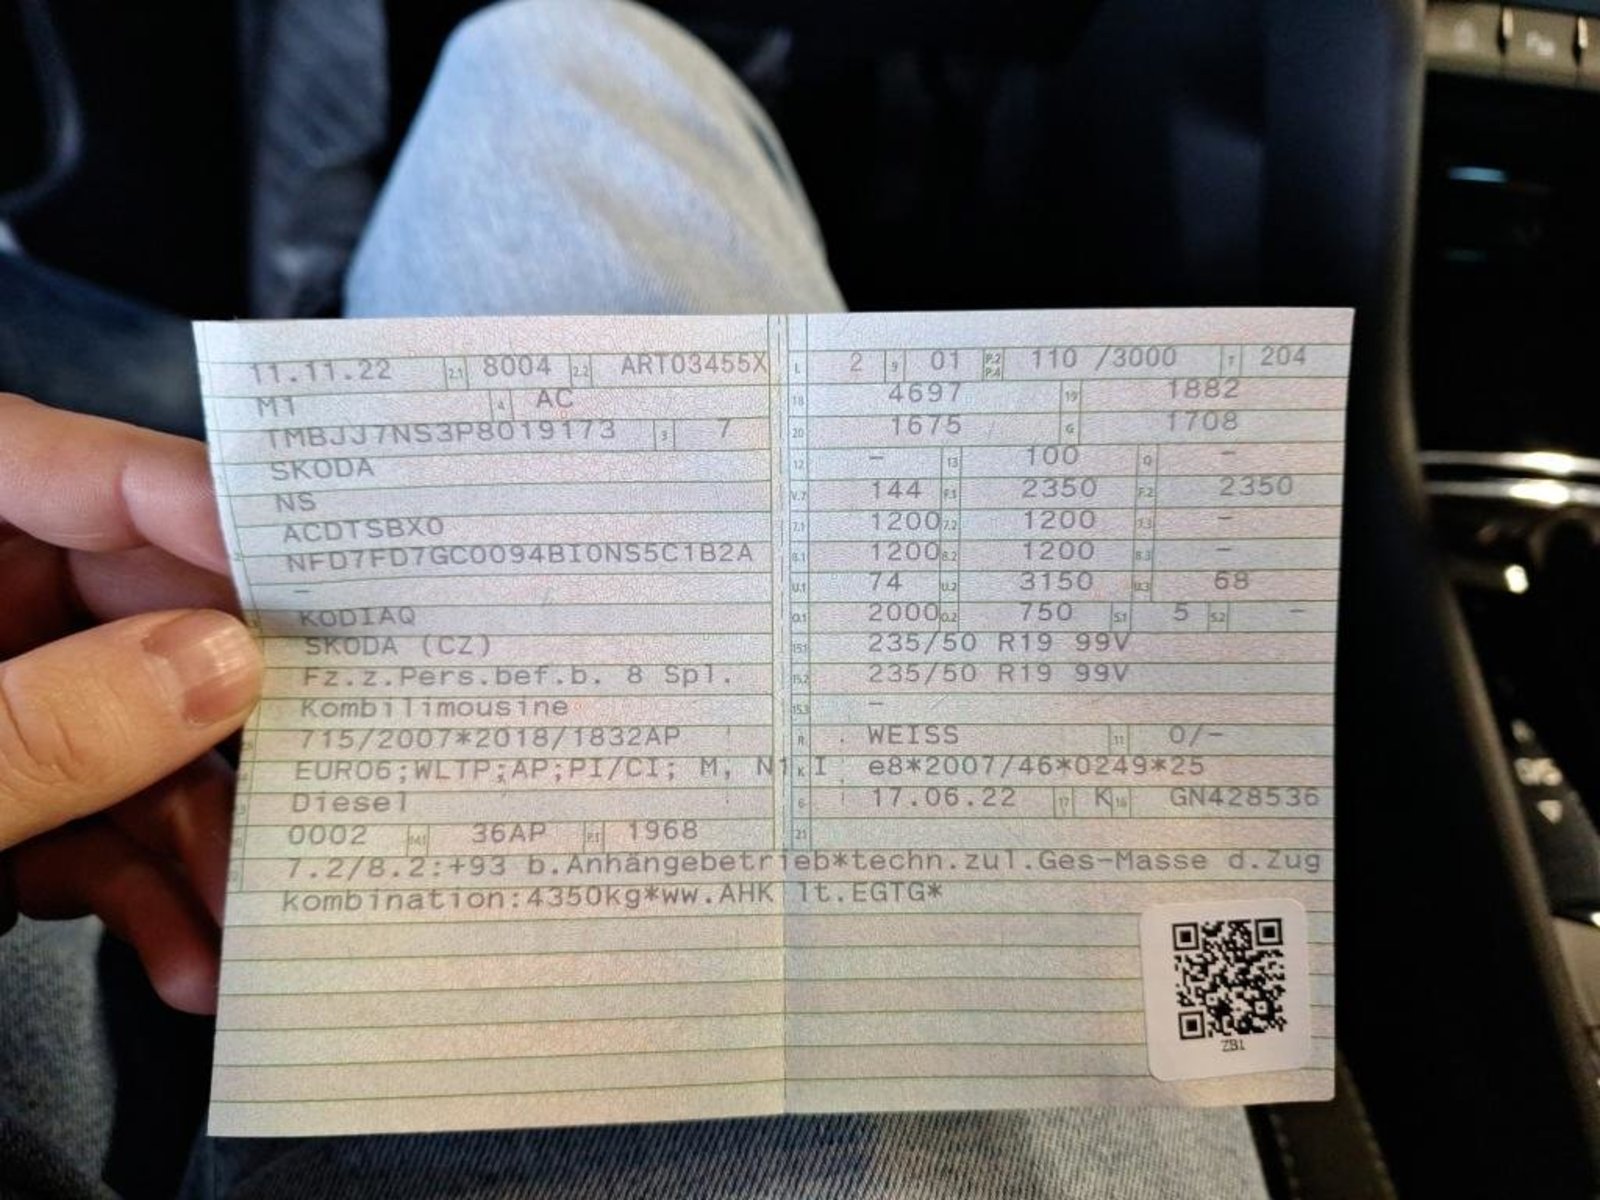 11.11.22 2.1 8004 2.2 ART03455X
M1 4 AC
TMBJJ7NS3P8019173 3 7
SKODA
NS
ACDTSBX0
NFD7FD7GC0094BI0NS5C1B2A
–
KODIAQ
SKODA (CZ)
Fz.z.Pers.bef.b. 8 Spl.
Kombilimousine
715/2007*2018/1832AP
EURO6;WLTP;AP;PI/CI; M, N1 I
Diesel
0002 36AP P.1 1968
L 2 9 01 P.2 P.4 110 /3000 T 204
18 4697 19 1882
20 1675 G 1708
12 – 13 100 Q –
V.7 144 F.1 2350 F.2 2350
7.1 1200 7.2 1200 7.3 –
8.1 1200 8.2 1200 8.3 –
U.1 74 U.2 3150 U.3 68
O.1 2000 O.2 750 S.1 5 S.2 –
15.1 235/50 R19 99V
15.2 235/50 R19 99V
15.3 –
R WEISS 11 0/-
K e8*2007/46*0249*25
6 17.06.22 17 K 16 GN428536
21
7.2/8.2:+93 b.Anhängebetrieb*techn.zul.Ges-Masse d.Zug
kombination:4350kg*ww.AHK lt.EGTG*
ZB1